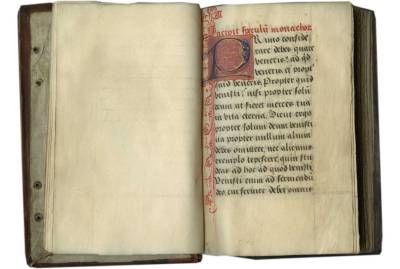 Incipit speculum monachor
Primo conside
rare debes quare
veneris? ad qd
veneris, et propt
quid veneris, Propter quid
venisti? nisi propter solū
deum ut fieret merces tua
in vita eterna. Dicut ergo
propter solum deum venisti
ita propter nullum alium
debes omittere, nec alicuius
exemplo tepescere, quin stu
deas ad hoc ad quod venisti
Venisti enim ad serviendū
deo, cui servire debet omnis